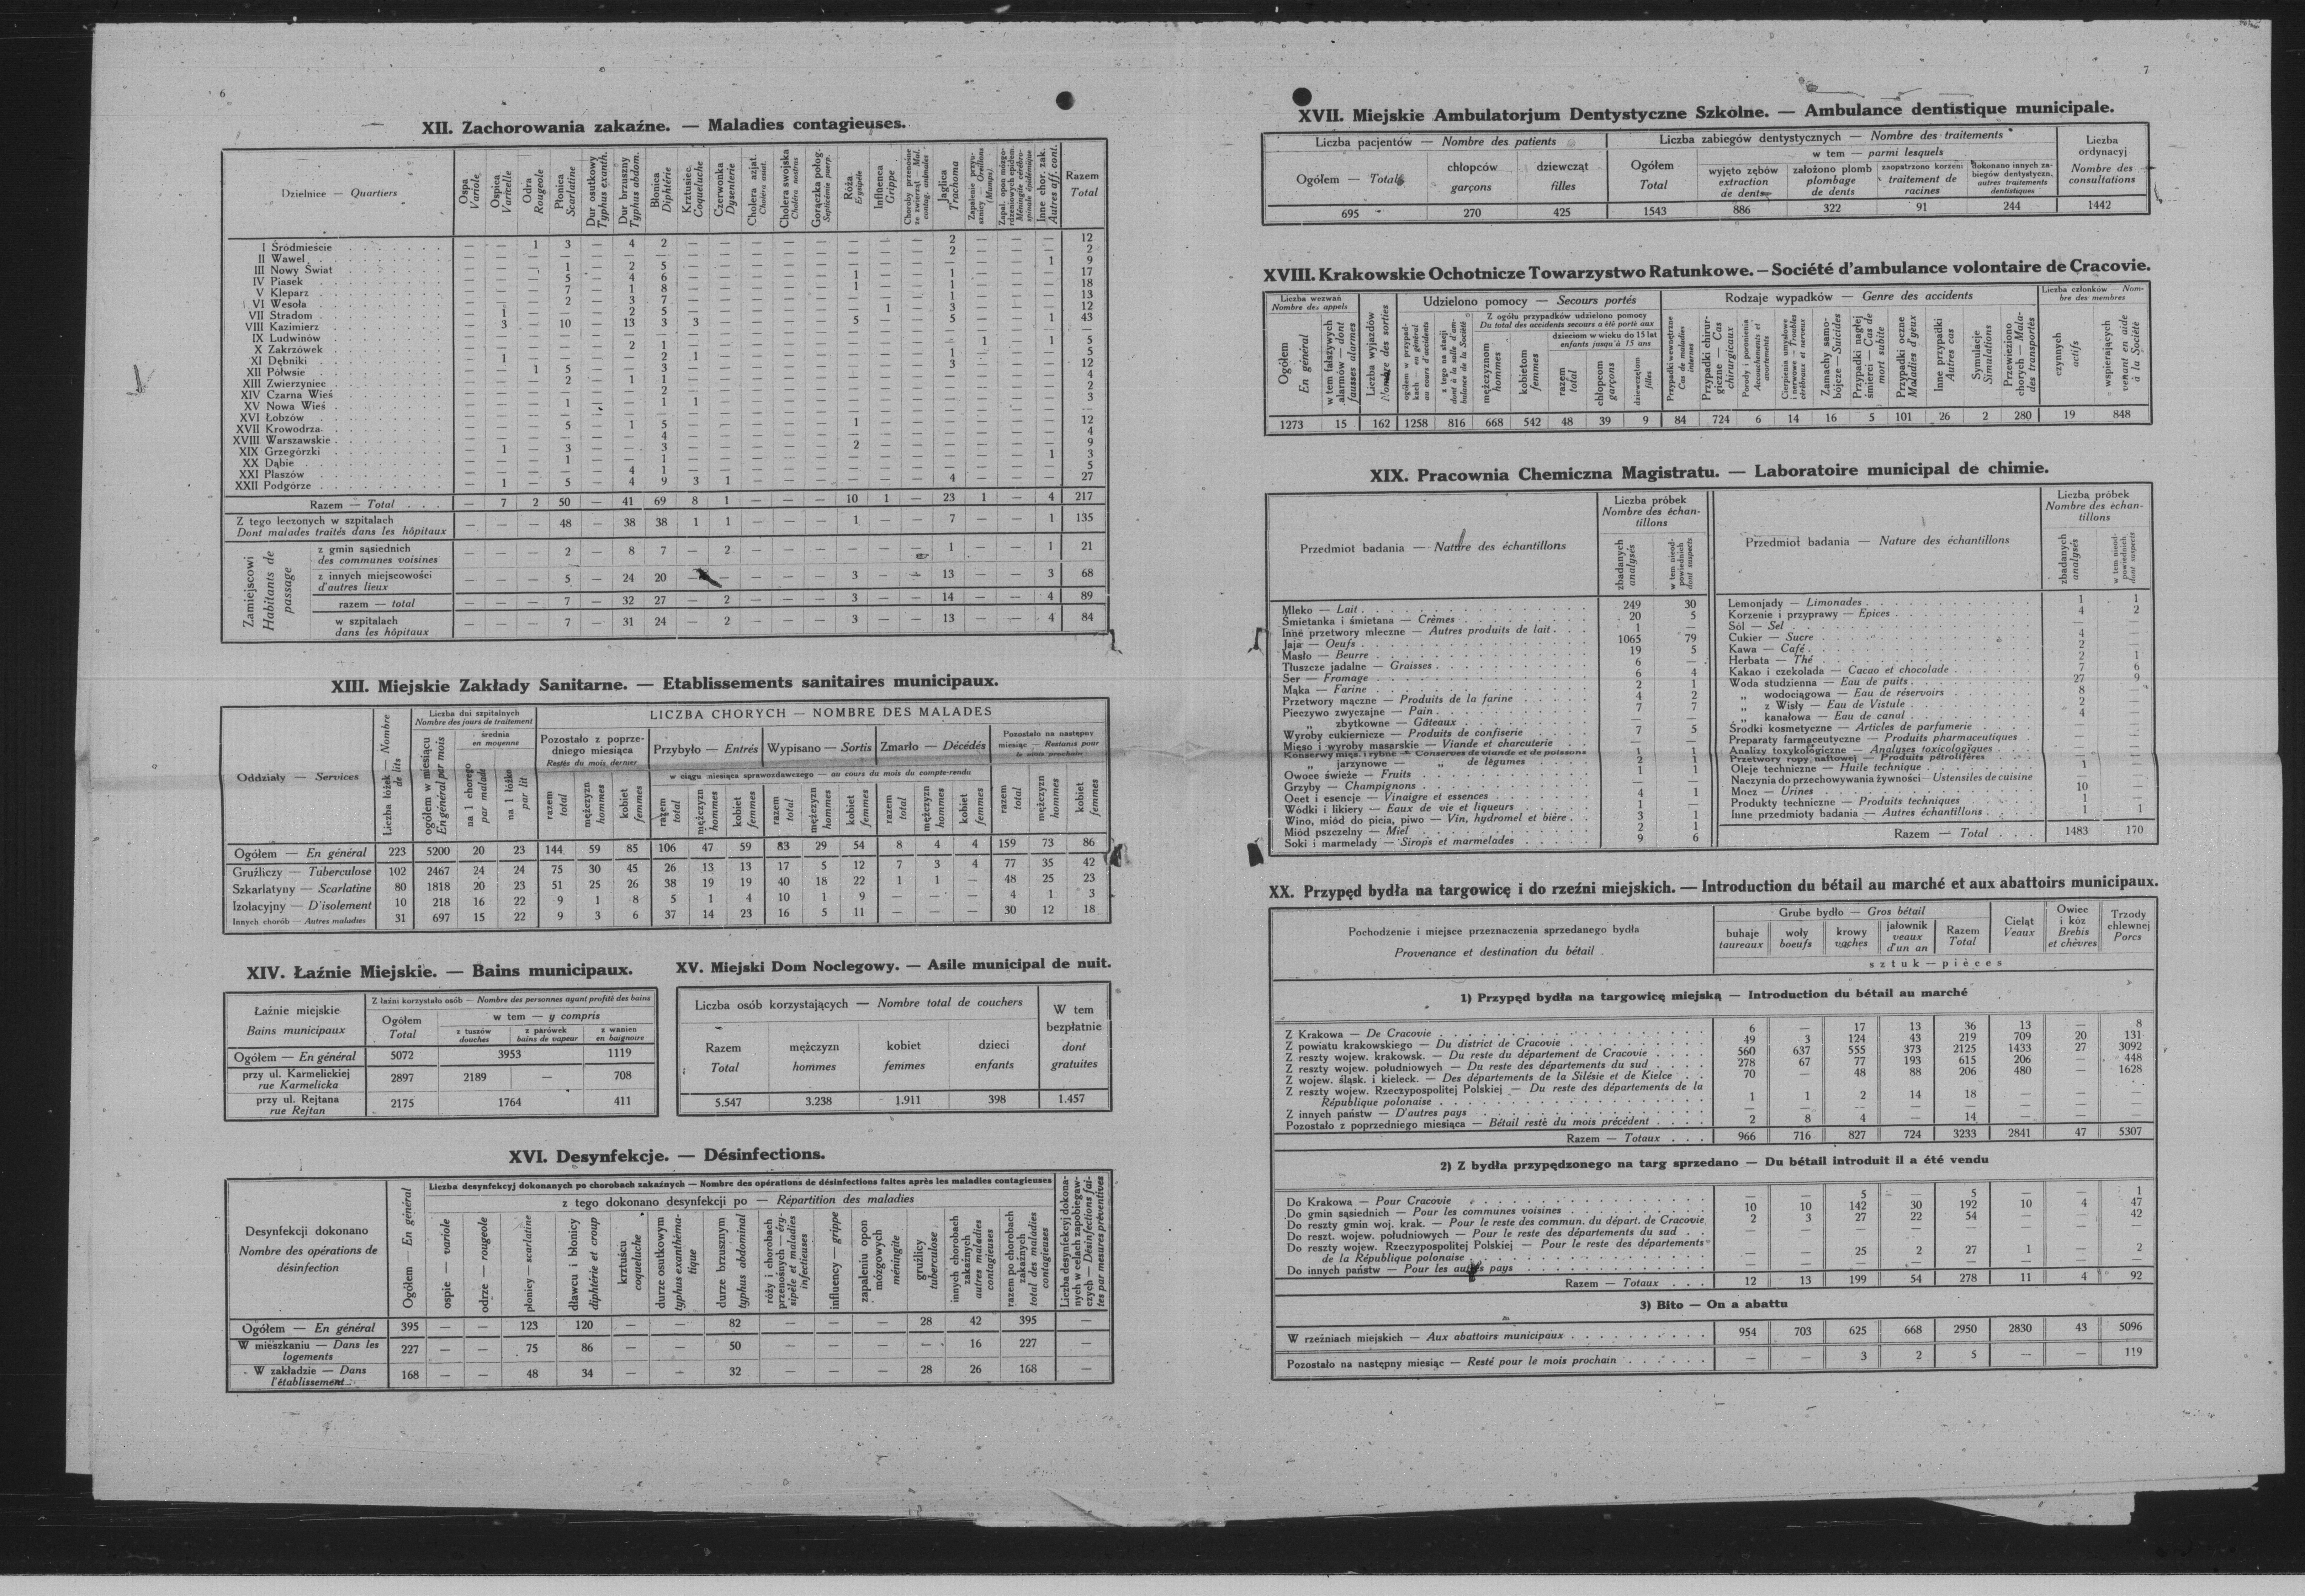 6
XII. Zachorowania zakaźne. — Maladies contagieuses.
Dzielnice — Quartiers
Ospa Variole
Ospica Varicelle
Odra Rougeole
Płonica Scarlatine
Dur osutkowy Typhus exanth.
Dur brzuszny Typhus abdom.
Błonica Diphtérie
Krztusiec Coqueluche
Czerwonka Dysenterie
Cholera azjat. Choléra asiat.
Cholera swojska Choléra nostras
Gorączka połog. Septicémie puerp.
Róża Erysipèle
Influenca Grippe
Jaglica Trachoma
Inne chor. zak. Autres aff. cont.
Razem Total
I Śródmieście — — 1 3 — 4 2 — — — — — — — — 2 — — — 12
II Wawel
III Nowy Świat
IV Piasek
V Kleparz
VI Wesoła
VII Stradom
VIII Kazimierz — 3 — 10 — 13 3 3 — — — — 5 — — 5 — — 1 43
IX Ludwinów
X Zakrzówek
XI Dębniki
XII Półwsie
XIII Zwierzyniec
XIV Czarna Wieś
XV Nowa Wieś
XVI Łobzów
XVII Krowodrza
XVIII Warszawskie
XIX Grzegórzki
XX Dąbie
XXI Płaszów
XXII Podgórze — 1 — 5 — 4 9 3 1 — — — — — — 4 — — — 27
Razem — Total — 7 2 50 — 41 69 8 1 — — — 10 1 — 23 1 — 4 217
Z tego leczonych w szpitalach
Dont malades traités dans les hôpitaux — — — 48 — 38 38 1 1 — — — 1 — — 7 — — 1 135
Zamiejscowi Habitants de passage
z gmin sąsiednich
des communes voisines — — — 2 — 8 7 — 2 — — — — — — 1 — — 1 21
z innych miejscowości
d'autres lieux — — — 5 — 24 20 — — — — 3 — — 13 — — 3 68
razem — total — — — 7 — 32 27 — 2 — — — 3 — — 14 — — 4 89
w szpitalach
dans les hôpitaux — — — 7 — 31 24 — 2 — — — 3 — — 13 — — 4 84
XIII. Miejskie Zakłady Sanitarne. — Etablissements sanitaires municipaux.
Oddziały — Services
Liczba łóżek — Nombre de lits
Liczba dni szpitalnych
Nombre des jours de traitement
ogółem w miesiącu En général par mois
średnia
en moyenne
na 1 chorego par malade
na 1 łóżko par lit
LICZBA CHORYCH — NOMBRE DES MALADES
Pozostało z poprzedniego miesiąca
Restés du mois dernier
Przybyło — Entrés
Wypisano — Sortis
Zmarło — Décédés
Pozostało na następny miesiąc — Restants pour le mois prochain
w ciągu miesiąca sprawozdawczego — au cours du mois du compte-rendu
razem total mężczyzn hommes kobiet femmes
Ogółem — En général 223 5200 20 23 144 59 85 106 47 59 83 29 54 8 4 4 159 73 86
Gruźliczy — Tuberculose 102 2467 24 24 75 30 45 26 13 13 17 5 12 7 3 4 77 35 42
Szkarlatyny — Scarlatine 80 1818 20 23 51 25 26 38 19 19 40 18 22 1 1 — 48 25 23
Izolacyjny — D'isolement 10 218 16 22 9 1 8 5 1 4 10 1 9 — — — 4 1 3
Innych chorób — Autres maladies 31 697 15 22 9 3 6 37 14 23 16 5 11 — — — 30 12 18
XIV. Łaźnie Miejskie. — Bains municipaux.
Łaźnie miejskie
Bains municipaux
Z łaźni korzystało osób — Nombre des personnes ayant profité des bains
Ogółem
Total
w tem — y compris
z tuszów
douches
z parówek
bains de vapeur
z wanien
en baignoire
Ogółem — En général 5072 3953 1119
przy ul. Karmelickiej
rue Karmelicka 2897 2189 — 708
przy ul. Rejtana
rue Rejtan 2175 1764 411
XV. Miejski Dom Noclegowy. — Asile municipal de nuit.
Liczba osób korzystających — Nombre total de couchers
W tem bezpłatnie
dont gratuites
Razem
Total
mężczyzn
hommes
kobiet
femmes
dzieci
enfants
5.547 3.238 1.911 398 1.457
XVI. Desynfekcje. — Désinfections.
Desynfekcji dokonano
Nombre des opérations de désinfection
Ogółem — En général
Liczba desynfekcyj dokonanych po chorobach zakaźnych — Nombre des opérations de désinfections faites après les maladies contagieuses
z tego dokonano desynfekcji po — Répartition des maladies
ospie — variole
odrze — rougeole
płonicy — scarlatine
dławcu i błonicy diphtérie et croup
krztuścu coqueluche
durze osutkowym typhus exanthématique
durze brzusznym typhus abdominal
róży i chorobach przenośnych — érysipèle et maladies infectieuses
influency — grippe
zapaleniu opon mózgowych méningite
gruźlicy tuberculose
innych chorobach zakaźnych autres maladies contagieuses
razem po chorobach zakaźnych total des maladies contagieuses
Liczba desynfekcyj dokonanych w celach zapobiegawczych — Désinfections faites par mesures préventives
Ogółem — En général 395 — — 123 120 — — 82 — — — 28 42 395 —
W mieszkaniu — Dans les logements 227 — — 75 86 — — 50 — — — — 16 227 —
W zakładzie — Dans l'établissement 168 — — 48 34 — — 32 — — — 28 26 168 —
7
XVII. Miejskie Ambulatorjum Dentystyczne Szkolne. — Ambulance dentistique municipale.
Liczba pacjentów — Nombre des patients
Liczba zabiegów dentystycznych — Nombre des traitements
Liczba ordynacyj
Nombre des consultations
Ogółem — Total
chłopców
garçons
dziewcząt
filles
Ogółem
Total
w tem — parmi lesquels
wyjęto zębów
extraction de dents
założono plomb
plombage de dents
zaopatrzono korzeni
traitement de racines
dokonano innych zabiegów dentystyczn.
autres traitements dentistiques
695 270 425 1543 886 322 91 244 1442
XVIII. Krakowskie Ochotnicze Towarzystwo Ratunkowe. — Société d'ambulance volontaire de Cracovie.
Liczba wezwań
Nombre des appels
Ogółem En général
w tem fałszywych alarmów — dont fausses alarmes
Liczba wyjazdów Nombre des sorties
Udzielono pomocy — Secours portés
Z ogółu przypadków udzielono pomocy
Du total des accidents secours a été porté aux
mężczyznom hommes
kobietom femmes
dzieciom w wieku do 15 lat
enfants jusqu'à 15 ans
razem total
chłopcom garçons
dziewczętom filles
Rodzaje wypadków — Genre des accidents
Przypadki wewnętrzne Cas de maladies internes
Przypadki chirurgiczne — Cas chirurgicaux
Porody i poronienia Accouchements et avortements
Cierpienia umysłowe i nerwowe — Troubles cérébraux et nerveux
Zamachy samobójcze — Suicides
Przypadki nagłej śmierci — Cas de mort subite
Przypadki oczne Maladies d'yeux
Inne przypadki Autres cas
Symulacje Simulations
Przewieziono chorych — Malades transportés
Liczba członków — Nombre des membres
czynnych actifs
wspierających venant en aide à la Société
1273 15 162 1258 816 668 542 48 39 9 84 724 6 14 16 5 101 26 2 280 19 848
XIX. Pracownia Chemiczna Magistratu. — Laboratoire municipal de chimie.
Przedmiot badania — Nature des échantillons
Liczba próbek
Nombre des échantillons
zbadanych analysés
w tem nieodpowiednich dont suspects
Mleko — Lait 249 30
Śmietanka i śmietana — Crêmes 20 5
Inne przetwory mleczne — Autres produits de lait 1 —
Jaja — Oeufs 1065 79
Masło — Beurre 19 5
Tłuszcze jadalne — Graisses 6 —
Ser — Fromage 6 4
Mąka — Farine 2 1
Przetwory mączne — Produits de la farine 4 2
Pieczywo zwyczajne — Pain 7 7
„ zbytkowne — Gâteaux — —
Wyroby cukiernicze — Produits de confiserie 7 5
Mięso i wyroby masarskie — Viande et charcuterie — —
Konserwy mięs. i rybne — Conserves de viande et de poissons 1 1
„ jarzynowe — „ de légumes 2 1
Owoce świeże — Fruits 1 1
Grzyby — Champignons
Ocet i esencje — Vinaigre et essences 4 1
Wódki i likiery — Eaux de vie et liqueurs 1 —
Wino, miód do picia, piwo — Vin, hydromel et bière 3 1
Miód pszczelny — Miel 2 1
Soki i marmelady — Sirops et marmelades 9 6
Przedmiot badania — Nature des échantillons
Liczba próbek
Nombre des échantillons
zbadanych analysés
w tem nieodpowiednich dont suspects
Lemonjady — Limonades 1 1
Korzenie i przyprawy — Epices 4 2
Sól — Sel — —
Cukier — Sucre 4 —
Kawa — Café 2 —
Herbata — Thé 2 1
Kakao i czekolada — Cacao et chocolade 7 6
Woda studzienna — Eau de puits 27 9
„ wodociągowa — Eau de réservoirs 8 —
„ z Wisły — Eau de Vistule 2 —
„ kanałowa — Eau de canal 4 —
Środki kosmetyczne — Articles de parfumerie — —
Preparaty farmaceutyczne — Produits pharmaceutiques — —
Analizy toxykologiczne — Analyses toxicologiques — —
Przetwory ropy naftowej — Produits pétrolifères
Oleje techniczne — Huile technique 1 —
Naczynia do przechowywania żywności — Ustensiles de cuisine — —
Mocz — Urines 10 —
Produkty techniczne — Produits techniques 1 —
Inne przedmioty badania — Autres échantillons 1 1
Razem — Total 1483 170
XX. Przypęd bydła na targowicę i do rzeźni miejskich. — Introduction du bétail au marché et aux abattoirs municipaux.
Pochodzenie i miejsce przeznaczenia sprzedanego bydła
Provenance et destination du bétail
Grube bydło — Gros bétail
buhaje
taureaux
woły
boeufs
krowy
vaches
jałownik
veaux d'un an
Razem
Total
Cieląt
Veaux
Owiec i kóz
Brebis et chèvres
Trzody chlewnej
Porcs
sztuk — pièces
1) Przypęd bydła na targowicę miejską — Introduction du bétail au marché
Z Krakowa — De Cracovie 6 — 17 13 36 13 — 8
Z powiatu krakowskiego — Du district de Cracovie 49 3 124 43 219 709 20 131
Z reszty wojew. krakowsk. — Du reste du département de Cracovie 560 637 555 373 2125 1433 27 3092
Z reszty wojew. południowych — Du reste des départements du sud 278 67 77 193 615 206 — 448
Z wojew. śląsk. i kieleck. — Des départements de la Silésie et de Kielce 70 — 48 88 206 480 — 1628
Z reszty wojew. Rzeczypospolitej Polskiej — Du reste des départements de la
République polonaise 1 1 2 14 18 — — —
Z innych państw — D'autres pays — — — — — — — —
Pozostało z poprzedniego miesiąca — Bétail resté du mois précédent 2 8 4 — 14 — — —
Razem — Totaux 966 716 827 724 3233 2841 47 5307
2) Z bydła przypędzonego na targ sprzedano — Du bétail introduit il a été vendu
Do Krakowa — Pour Cracovie — — 5 — 5 — — 1
Do gmin sąsiednich — Pour les communes voisines 10 10 142 30 192 10 4 47
Do reszty gmin woj. krak. — Pour le reste des commun. du départ. de Cracovie 2 3 27 22 54 — — 42
Do reszt. wojew. południowych — Pour le reste des départements du sud — — — — — — — —
Do reszty wojew. Rzeczypospolitej Polskiej — Pour le reste des départements
de la République polonaise — — 25 2 27 1 — 2
Do innych państw — Pour les autres pays — — — — — — — —
Razem — Totaux 12 13 199 54 278 11 4 92
3) Bito — On a abattu
W rzeźniach miejskich — Aux abattoirs municipaux 954 703 625 668 2950 2830 43 5096
Pozostało na następny miesiąc — Resté pour le mois prochain — — 3 2 5 — — 119